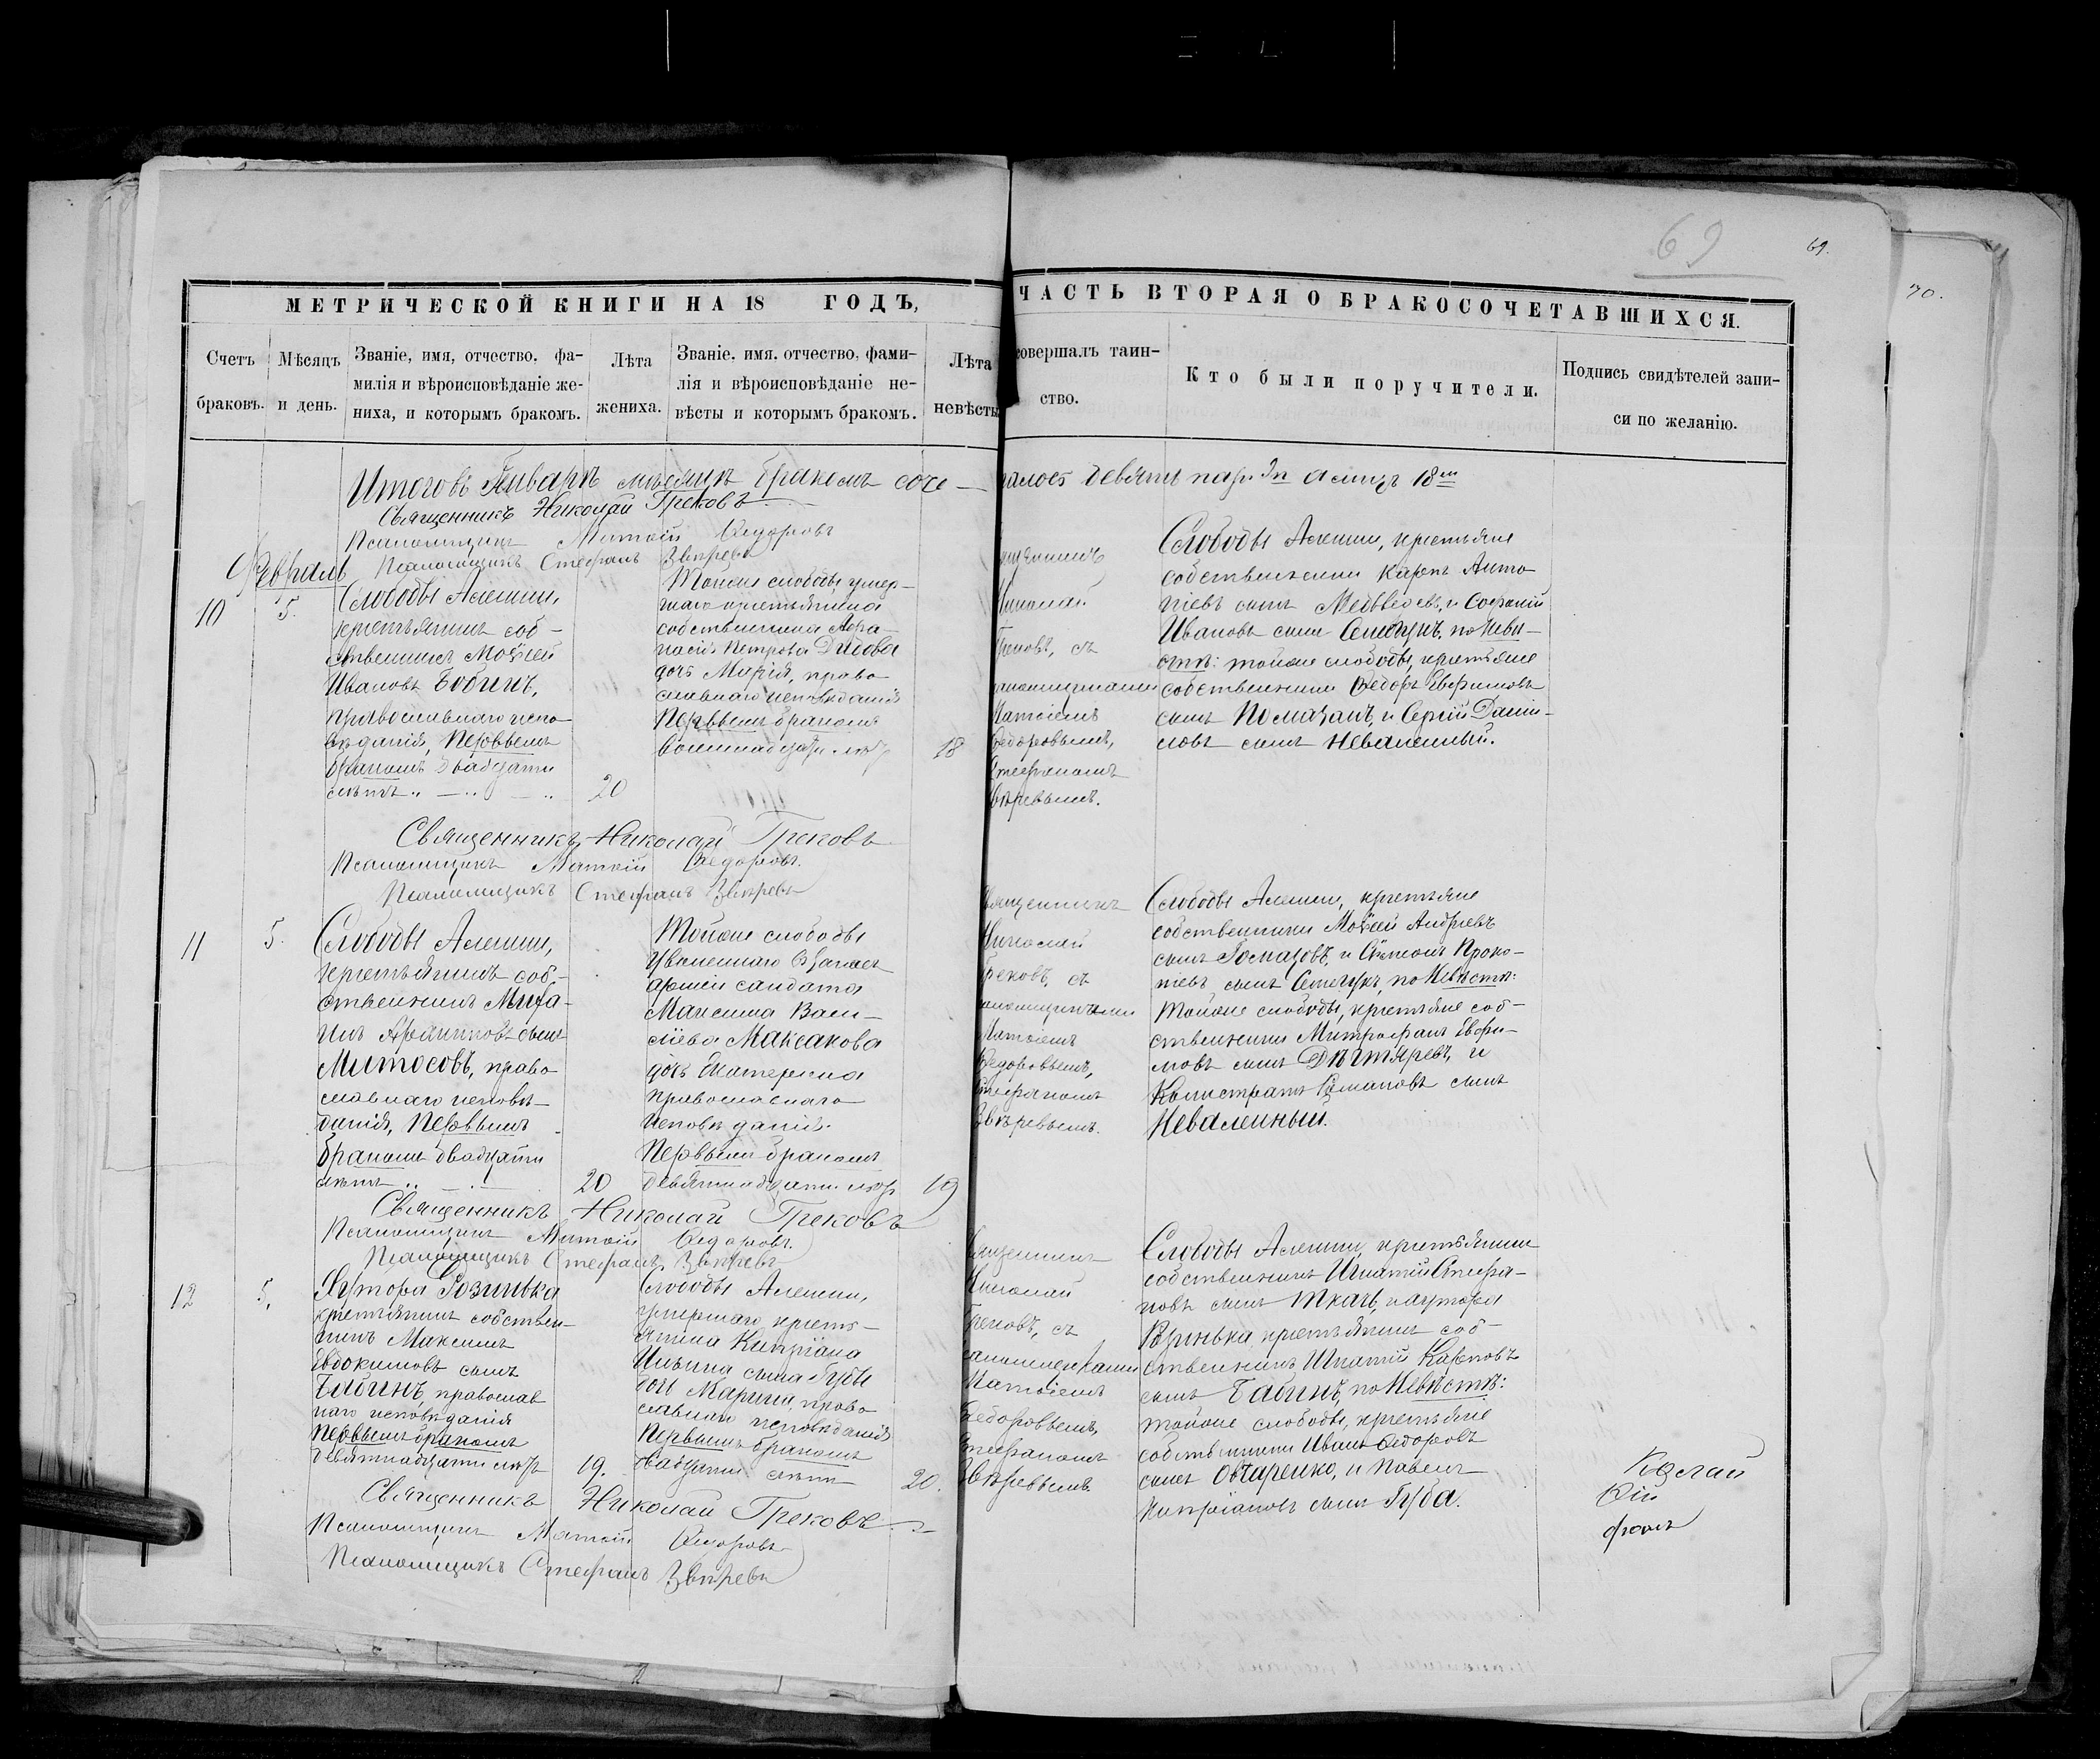 69
69.
70.
МЕТРИЧЕСКОЙ КНИГИ НА 18 ГОДЪ,
ЧАСТЬ ВТОРАЯ О БРАКОСОЧЕТАВШИХСЯ.
Счетъ браковъ.
Мѣсяцъ и день.
Званіе, имя, отчество, фа-
милія и вѣроисповѣданіе же-
ниха, и которымъ бракомъ.
Лѣта
жениха.
Званіе. имя. отчество, фами-
лія и вѣроисповѣданіе не-
вѣсты и которымъ бракомъ.
Лѣта
невѣсты
совершалъ таин-
ство.
Кто были поручители.
Подпись свидѣтелей запи-
си по желанію.
Итого въ Январѣ мѣсяцѣ бракомъ соче-
талось девять паръ
Священникъ Николай Грековъ
Псаломщикъ Матѳій Ѳедоровъ
Псаломщикъ Стефанъ Звѣревъ
Февраль
10
5.
Слободы Алешни,
крестьянинъ соб-
ственникъ Моѵсей
Ивановъ Бобинъ,
православнаго испо-
вѣданія, Первымъ
бракомъ двадцати
лѣтъ
20
Тойже слободы умер-
шаго крестьянина
собственника Аѳа-
насія Петрова Дидова
дочь Марія, право
славнаго исповѣданія
Первымъ бракомъ
восемнадцати лѣтъ
18
Николай
Грековъ, съ
Матѳіемъ
Ѳедоровымъ,
Стефаномъ
Звѣревымъ.
Слободы Алешни, крестьяне
собственники Карпъ Анто
ніевъ сынъ Медведевъ, и Софоній
Ивановъ сынъ Семчукъ, по Невѣ-
стѣ: тойже слободы, крестьяне
собственники Ѳедоръ Евфимовъ
сынъ Помазанъ, и Сергій Даніи-
ловъ сынъ Неваленный.
Священникъ Николай Грековъ
Псаломщикъ Матѳій Ѳедоровъ.
Псаломщикъ Стефанъ Звѣревъ
11
5.
Слободы Алешни,
крестьянинъ соб-
ственникъ Миха-
илъ сынъ
Митосовъ, право
славнаго исповѣ-
данія, Первымъ
бракомъ двадцати
лѣтъ
20
Тойже слободы
Уволеннаго въ запасъ
арміи солдата
Максима Васи-
ліева Максакова
дочь Екатерина
православнаго
исповѣданія.
Первымъ бракомъ
девятнадцати лѣтъ
19
Священникъ
Николай
Грековъ, съ
Матѳіемъ
Ѳедоровымъ,
Стефаномъ
Звѣревымъ.
Слободы Алешни, крестьяне
собственники Моѵсей Андреевъ
сынъ и Сѵмеонъ Проко-
піевъ сынъ Семчукъ, по Невѣстѣ:
Тойже слободы, крестьяне соб-
ственники Митрофанъ Евфи-
мовъ сынъ Дѣгтяревъ, и
Калистратъ Романовъ сынъ
Неваленный.
Священникъ Николай Грековъ
Псаломщикъ Матѳій Ѳедоровъ.
Псаломщикъ Стефанъ Звѣревъ
12
5.
Хутора
крестьянинъ собствен-
никъ Максимъ
Евдокимовъ сынъ
Бабинъ, православ
наго исповѣданія
Первымъ бракомъ
девятнадцати лѣтъ
19.
Слободы Алешни,
умершаго кресть-
янина Кипріана
Ильина сына Губы
дочь Марина, право
славнаго исповѣданія
Первымъ бракомъ
двадцати лѣтъ
20.
Священникъ
Николай
Грековъ, съ
Матѳіемъ
Ѳедоровымъ,
Стефаномъ
Звѣревымъ
Слободы Алешни, крестьянинъ
собственникъ Игнатій Стефа-
новъ сынъ Ткачъ, и хутора
крестьянинъ соб-
ственникъ Игнатій Карповъ
сынъ Бабинъ, по Невѣстѣ:
тойже слободы, крестьяне
собственники Иванъ Ѳедоровъ
сынъ Овчаренко, и Павелъ
Кипріановъ сынъ Губа.
Священникъ Николай Грековъ
Псаломщикъ Матѳій Ѳедоровъ
Псаломщикъ Стефанъ Звѣревъ